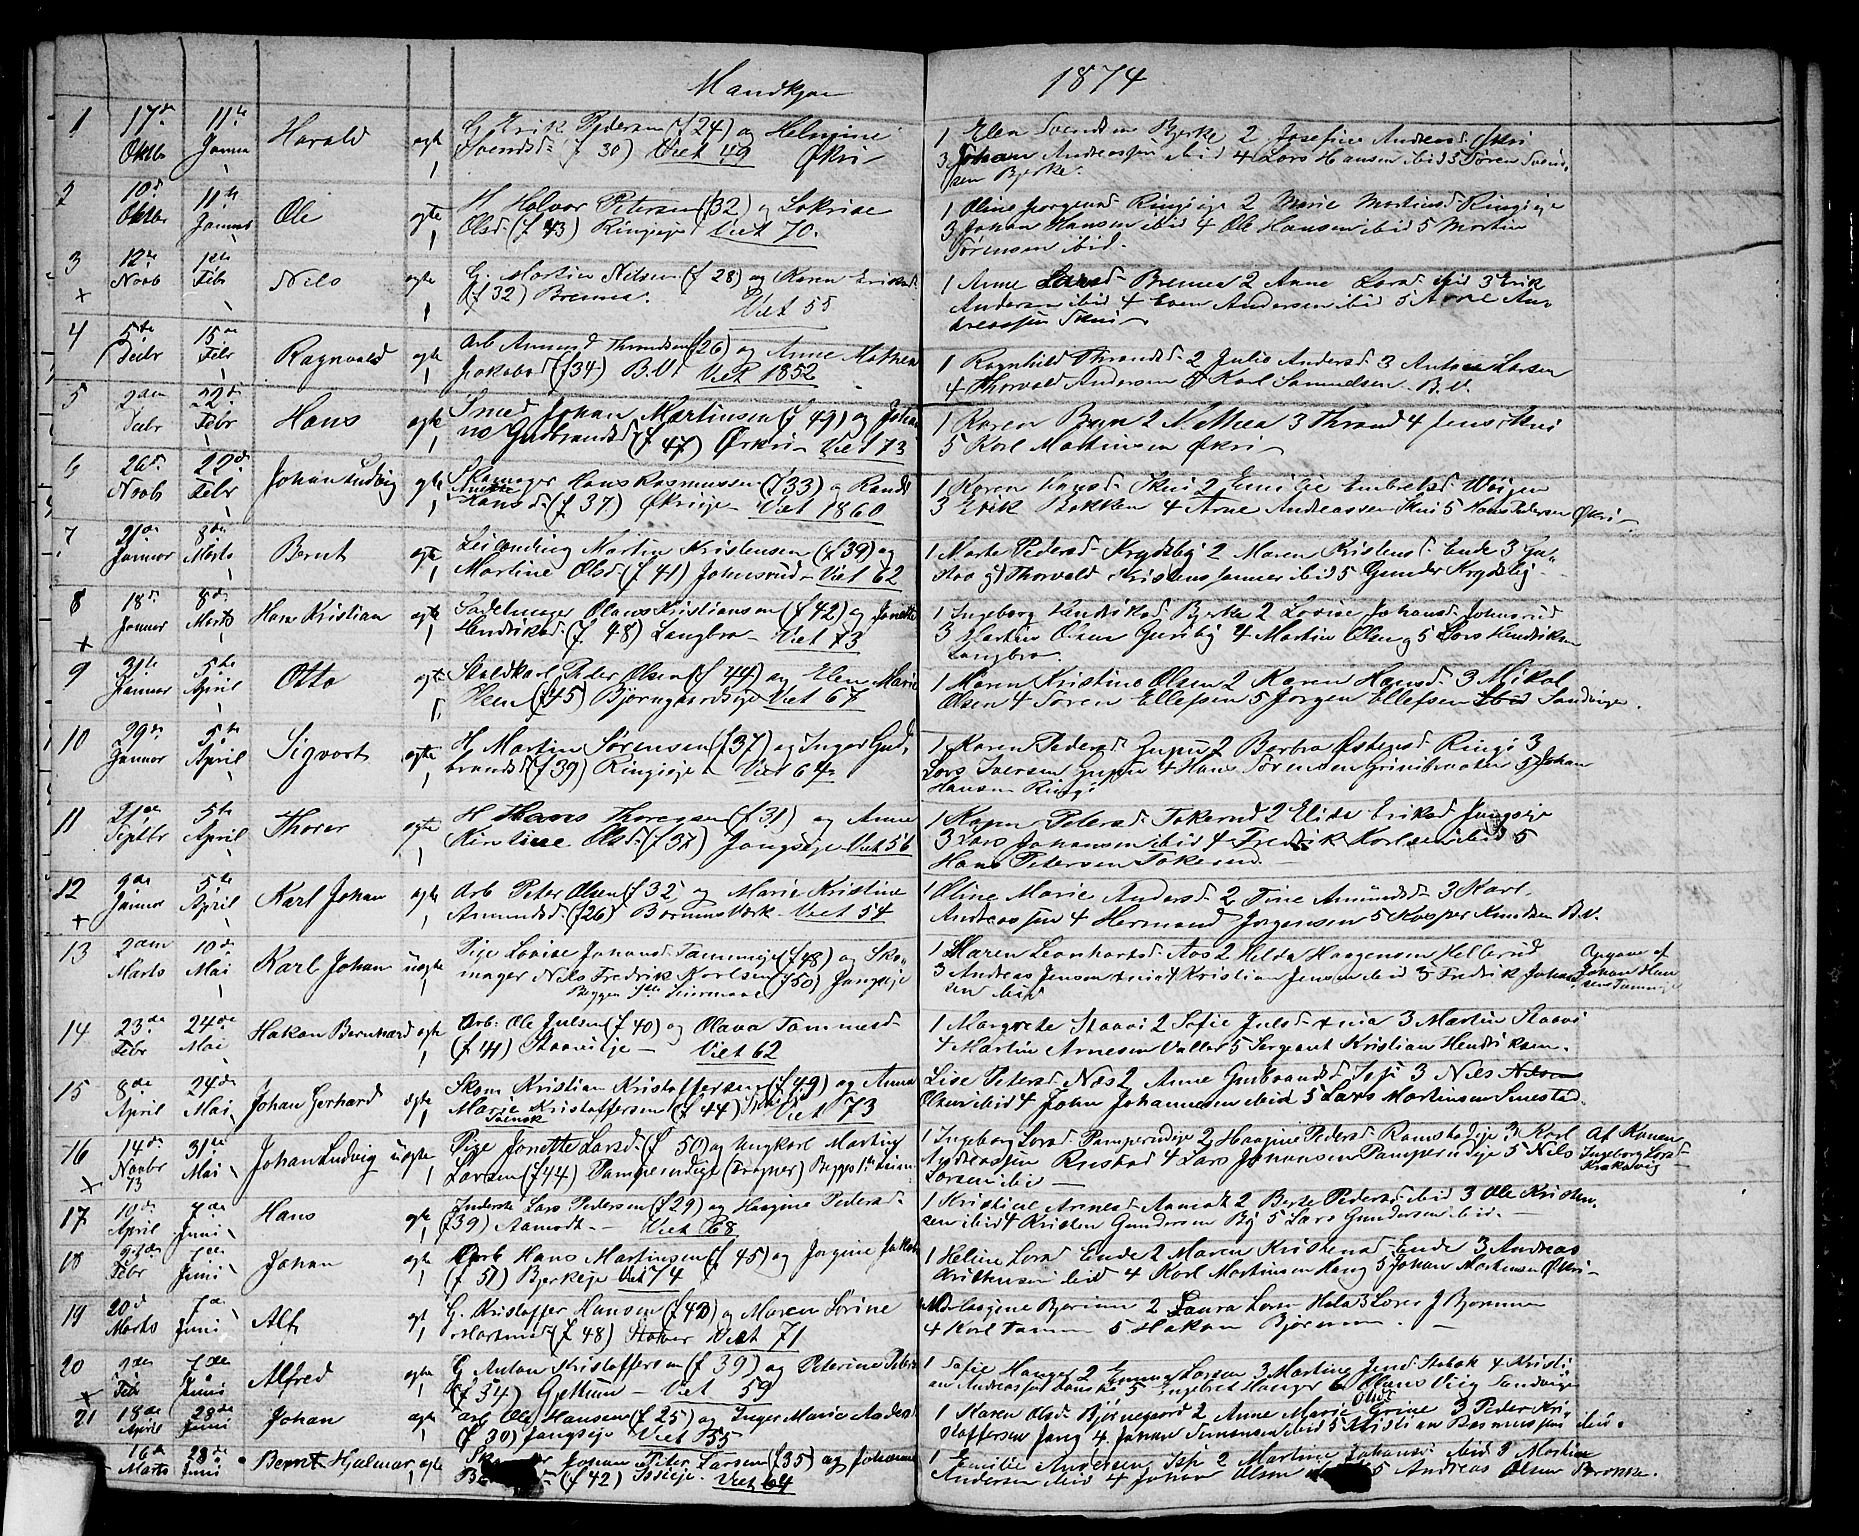 Mandkjøn 1874
1 17de Oktbr 11te Januar Harald ægte 1 G. Erik Pedersen (f 24) og Helmine
Svendsd. (f 30) Viet 49 Økri
1 Elen Svendsen Bjerke 2 Josefine Andreasd. Økri
3 Johan Andreassen ibid 4 Lars Hansen ibid 5 Søren Svend-
sen Bjerke.
2 10de Oktbr 11te Januar Ole ægte 1 H Halvor Petersen (f 32) og Lovise
Olsd. (f 43) Ringieje Viet 70.
1 Oline Jørgensd Ringieje 2 Marie Mortensd. Ringieje
3 Johan Hansen ibid 4 Ole Hansen ibid 5 Morten
Sørensen ibid.
3 + 12te Novb 1ste Febr Nils ægte 1 G. Martin Nilsen (f 28) og Karen Eriksd.
(f 32) Brenna. Viet 55
1 Anne Larsd. Brenna 2 Anne Larsd ibid 3 Erik
Andersen ibid 4 Even Andersen ibid 5 Arne An-
dreassen Skui
4 5te Decbr 15de Febr Ragnvald ægte 1 Arb Amund Throndsen (f 26) og Anne Mathea
Jakobsd (f 34) B.V. Viet 1852
1 Ragnhild Thrandsd. 2 Julie Andersd 3 Anton Larsen
4 Thorvald Andersen 5 Karl Samuelsen B.V.
5 2den Decbr 22de Febr Hans ægte 1 Smed Johan Martinsen (f 49) og Johan-
ne Gudbrandsd. (f 47) Økri Viet 73
1 Karen Byn 2 Mathea 3 Thrond 4 Jens Skui
5 Karl Mathisen Økri
6 26de Novb 22de Febr Johan Ludvig ægte 1 Skomager Hans Rasmussen (f 33) og Randi
Hansd. (f 37) Økrieje Viet 1860
1 Karen Hansd. Skui 2 Emilie Embretsd. Wøien
3 Erik Bakken 4 Arne Andreassen Skui 5 Hans Pedersen Økri
7 21de Januar 8de Marts Bernt ægte 1 Leilending Martin Kristensen (f 39) og
Martine Olsd (f 41) Johnsrud Viet 62
1 Marte Pedersd. Krydsby 2 Maren Kristensd. Ende 3 Gu-
stav 4 Thorvald Kristenssønner ibid 5 Gunder Krydsby
8 + 18de Januar 8de Marts Hans Kristian ægte 1 Sadelmager Olaus Kristiansen (f 42) og Janette
Hendriksd. (f 48) Langbro Viet 73
1 Ingeborg Hendriksd. Bjerke 2 Lovise Johansd. Johnsrud
3 Martin Olsen Guriby 4 Martin Olsen 5 Lars Hendriksen
Langbro.
9 31te Januar 5te April Otto ægte 1 Staldkarl Peder Olsen (f 44) og Elen Marie
Olsen (f 45) Bjørngaardseje Viet 67
1 Maren Kristine Olsen 2 Karen Hansd. 3 Mikal
Olsen 4 Søren Ellefsen 5 Jørgen Ellefsen Ibid Sandvigen.
10 29de Januar 5te April Sigvart ægte 1 H. Martin Sørensen (f 37) og Inger Gud-
brandsd (f 39) Ringieje Viet 64
1 Karen Pedersd. Gupu 2 Barbra Østensd. Ringi 3
Lars Iversen Gupu 4 Hans Sørensen Grinibraaten 5 Johan
Hansen Ringi
11 21de Septbr 5te April Thorer ægte 1 H Hans Thoresen (f 31) og Anne
Kirstine Olsd. (f 37) Jongseje Viet 56
1 Karen Petersd. Tokerud 2 Elise Eriksd. Jongseje
3 Lars Johansen ibid 4 Fredrik Karlsen ibid 5
Hans Petersen Tokerud
12 + 9de Januar 5te April Karl Johan ægte 1 Arb Peter Olsen (f 32 og Marie Kristine
Amundsd. (f 26) Bærums Værk Viet 54
1 Oline Marie Andersd. 2 Tine Amundsd. 3 Karl
Andreassen 4 Hermand Jørgensen 5 Kasper Knudsen B.V.
13 2den Marts 10de Mai Karl Johan uægte 1 Pige Lovise Johansd. Tanumeje (f 48) og Sko-
mager Nils Fredrik Karlsen (f 50) Jongseje
Begges 1ste Leiermaal
1 Maren Leonhartsd. Aas 2 Helda Haagensen Hellerud
3 Andreas Jensen 4 Kristian Jensen ibid 5 Fredrik Johan-
sen ibid
Opgave af
Johan Han
sen Tanumeje
14 23de Febr 24de Mai Hakon Bernhard ægte 1 Arb. Ole Julsen (f 40) og Olava Tommesd.
(f 41) Staavieje Viet 62
1 Margrete Staavi 2 Sofie Julsd. 3 Martin Staavi
4 Martin Arnesen Valler 5 Sergeant Kristian Hendriksen.
15 8de April 24de Mai Johan Gerhard ægte 1 Skom. Kristian Kristoffersen (f 49) og Anna
Marie Kristoffersen (f 44) Svensk Viet 73
Lise Petersd. Næs 2 Anne Gulbrandsd. Jsi 3 Nils Nilsen
Olsen ibid 4 John Johannesen ibid 5 Lars Mortensen Smestad.
16 + 14de Novbr 73 31te Mai Johan Ludvig uægte 1 Pige Janette Larsd. (f 50) og Ungkarl Martin
Larsen (f 44) Pamperudeje (Dragner) Begges 1ste Leierm.
1 Ingeborg Larsd. Pamperudeje 2 Haagine Pedersd. Ramstadeje 3 Karl
Andreassen Rustad 4 Lars Johansen Pamperudeje 5 Nils
Larsen ibid
Af Konen
Ingeborg Larsd.
Kroksvig
17 10de April 7de Juni Hans ægte 1 Inderste Lars Pedersen (f 29) og Haagine Pedersd.
(f 39) Aamodt. Viet 68
1 Kristine Arnesd. Aamodt 2 Berte Pedersd. ibid 3 Ole Kristen-
sen ibid 4 Kristen Gundersen By 5 Lars Gundersen ibid.
18 22de Febr 7de Juni Johan ægte 1 Arb Hans Martinsen (f 45) og Jørgine Jakobsd
(f 51) Bjerkeje Viet 74
1 Heline Larsd. Ende 2 Maren Kristensd. Ende 3 Andreas
Kristensen ibid 4 Karl Martinsen Haug 5 Johan Martensen Økri
19 20de Marts 7de Juni Alf ægte 1 G. Kristoffer Hansen (f 42) og Maren Lovine
Martinsd (f 48) Stover Viet 71
Jørgine Bjerum 2 Laura Larsen Hola 3 Lars J Bjørnum
4 Karl Tanum 5 Hakon Bjørnum.
20 + 9de Febr 7de Juni Alfred ægte 1 G Anton Kristoffersen (f 39) og Peterine Peters
(f 34) Gjettum Viet 59
1 Sofie Hanger 2 Emma Larsen 3 Martine Jensd. Stabæk 4 Kristi-
an Andreassen Danske 5 Ingebret Hanger 6 Hans Viig Sandvigen
21 18de April 28de Juni Johan ægte 1 Arb Ole Hansen (f 25) og Inger Marie Andersd
(f 30) Jongseje Viet 55
1 Karen Olsd. Bjørnegaard 2 Anne Marie Olsd Grine 3 Peder Kri-
stoffersen Jong 4 Johan Simensen ibid 5 Kristian Rasmussen ibid.
16de Marts 28de Juni Bernt Hjalmar ægte 1 Johan Peter Larsen (f 35) og Johanne
(f 42) Isieje. Viet 64
1 Emilie Andersen Isi 2 Martine Johansd ibid 3 Martin
Andersen ibid 4 Johan Olsen 5 Andreas Olsen Brønne.